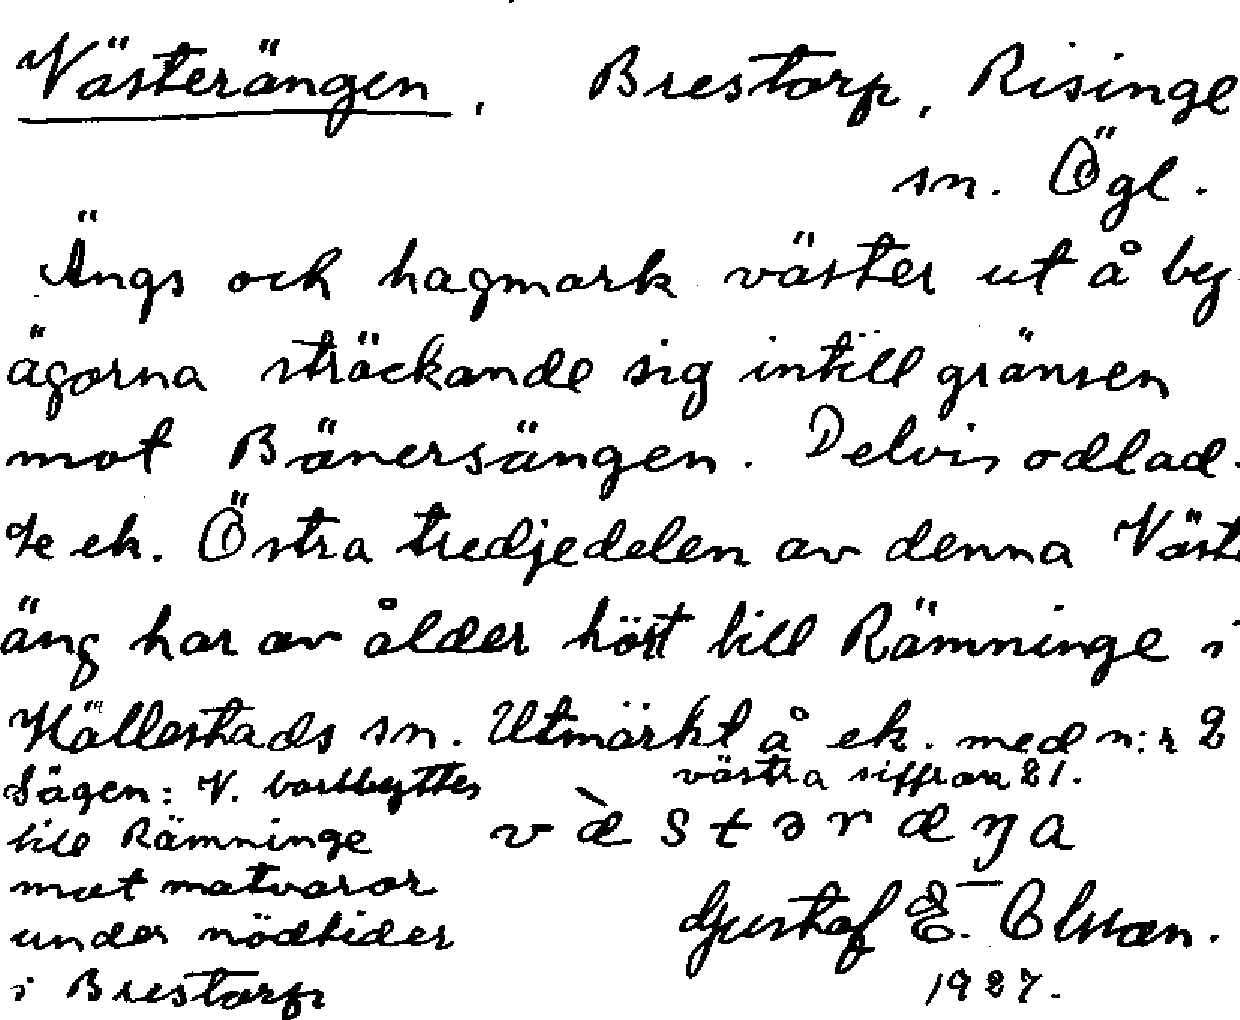 Västerängen, Brestorp, Risinge
sn. Ögl.
Ängs och hagmark väster ut å by-
ägorna sträckande sig intill gränsen
mot Bänersängen. Delvis odlad.
Se ek. Östra tredjedelen av denna Väst
äng har av ålder hört till Rämninge i
Hällestads sn. Utmärkt å ek. med n:r 2
västra siffran 21.
Sägen: V. bortbyttes
till Rämninge
mot matvaror
under nödtider
i Brestorp
vὰstəræŋa
Gustaf E. Olsson.
1927.